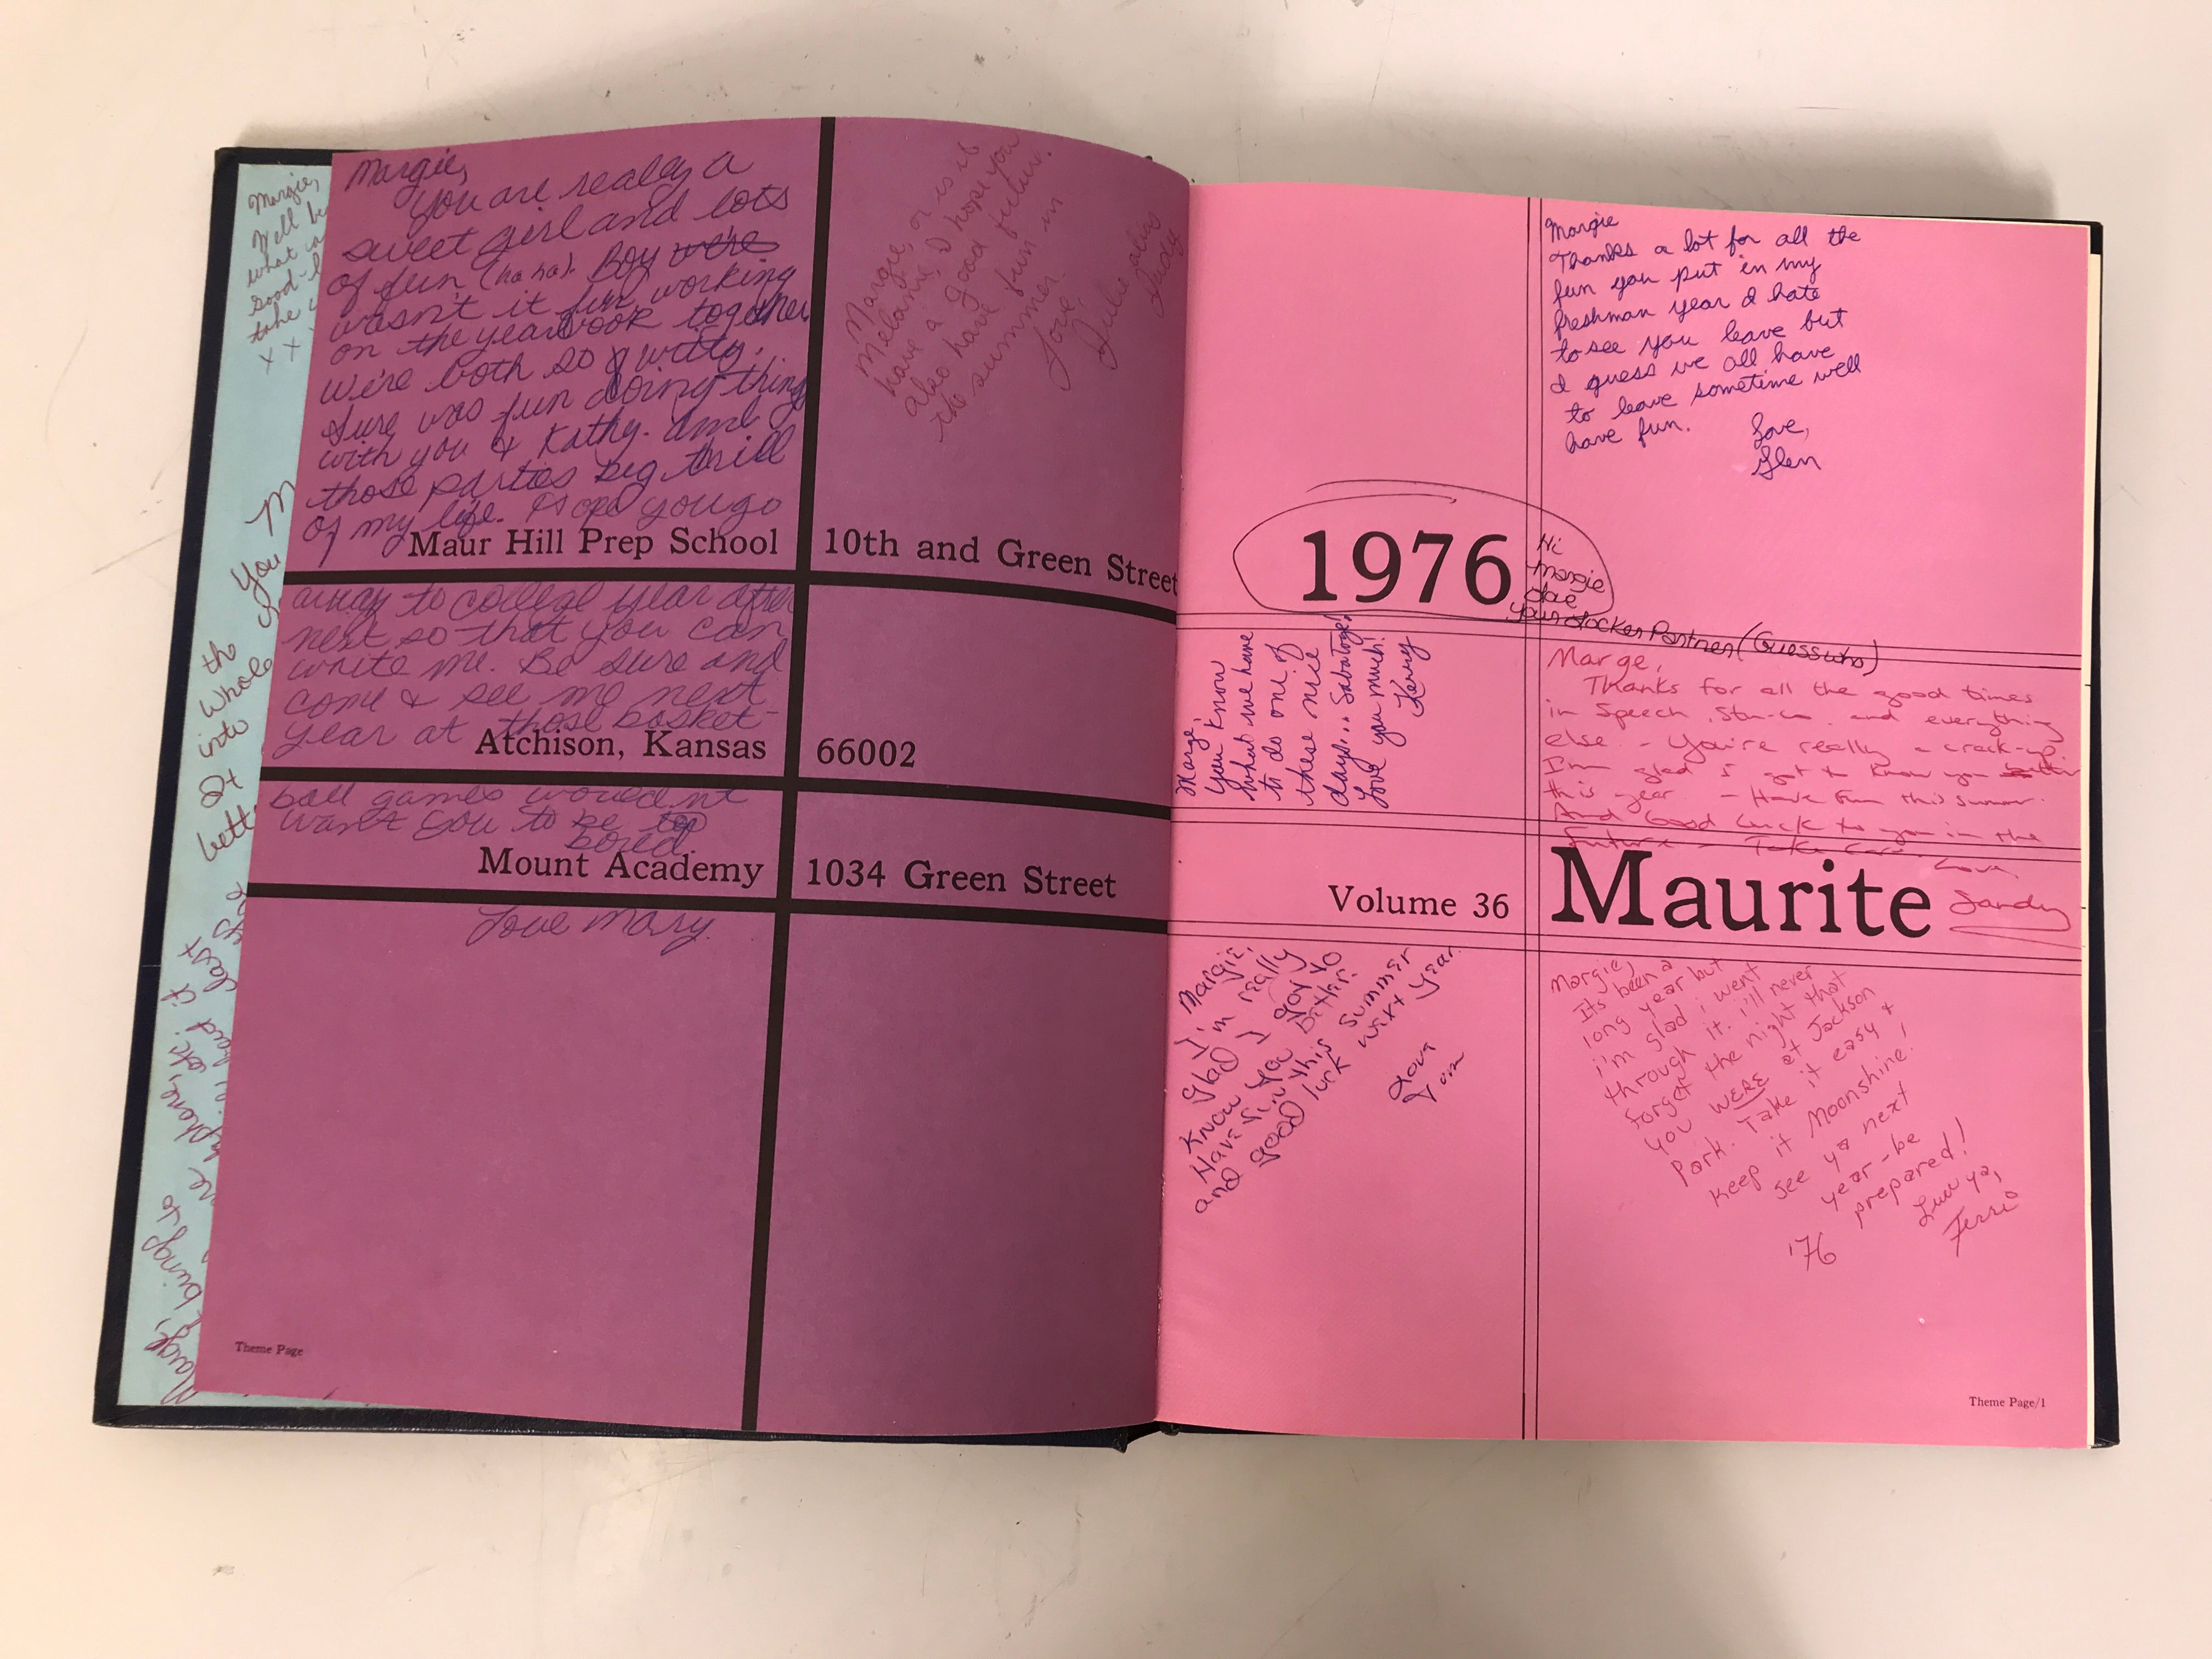 Margie,
Well be
what ca
good-l
take y
x x
M
You
the
Whole
into
It
bett
Marge,
brings to
Margie,
You are really a
sweet girl and lots
of fun (ha ha). Boy were
wasn't it fun working
on the yearbook together
We're both so witty.
Sure was fun doing things
with you & Kathy. And
those parties big thrill
of my life. Hope you go
Maur Hill Prep School
away to college year after
next so that you can
write me. Be sure and
come & see me next
year at those basket-
Atchison, Kansas
ball games wouldn't
want you to be too
bored.
Mount Academy
Love Mary.
Theme Page
Margie, or is it
Melanie, I hope you
have a good future.
also have fun in
the summer
Love,
Julie
10th and Green Street
66002
1034 Green Street
Margie
Thanks a lot for all the
fun you put in my
freshman year I hate
to see you leave but
I guess we all have
to leave sometime well
have fun.
Love,
Glen
1976
Hi
Margie
your Locker Partner (Guess who)
Marge,
You know
what we have
to do one of
these nice
days... Sabatoge!
Love you much!
Kerry
Marge,
Thanks for all the good times
in Speech, Stu-co. and everything
else - You're really a crack-up.
I'm glad I got to know you better
this year - Have fun this summer.
And Good Luck to you in the
future - Take Care.
Love,
Sandy
Volume 36
Maurite
Margie,
I'm really
glad I got to
know you better.
Have fun this summer
and good luck next year.
Love
Tom
Margie,
Its been a
long year but
i'm glad i went
through it. i'll never
forget the night that
you WERE at Jackson
Park. Take it easy &
keep it Moonshine!
see ya next
year - be
prepared!
Luv ya,
Terri
'76
Theme Page/1